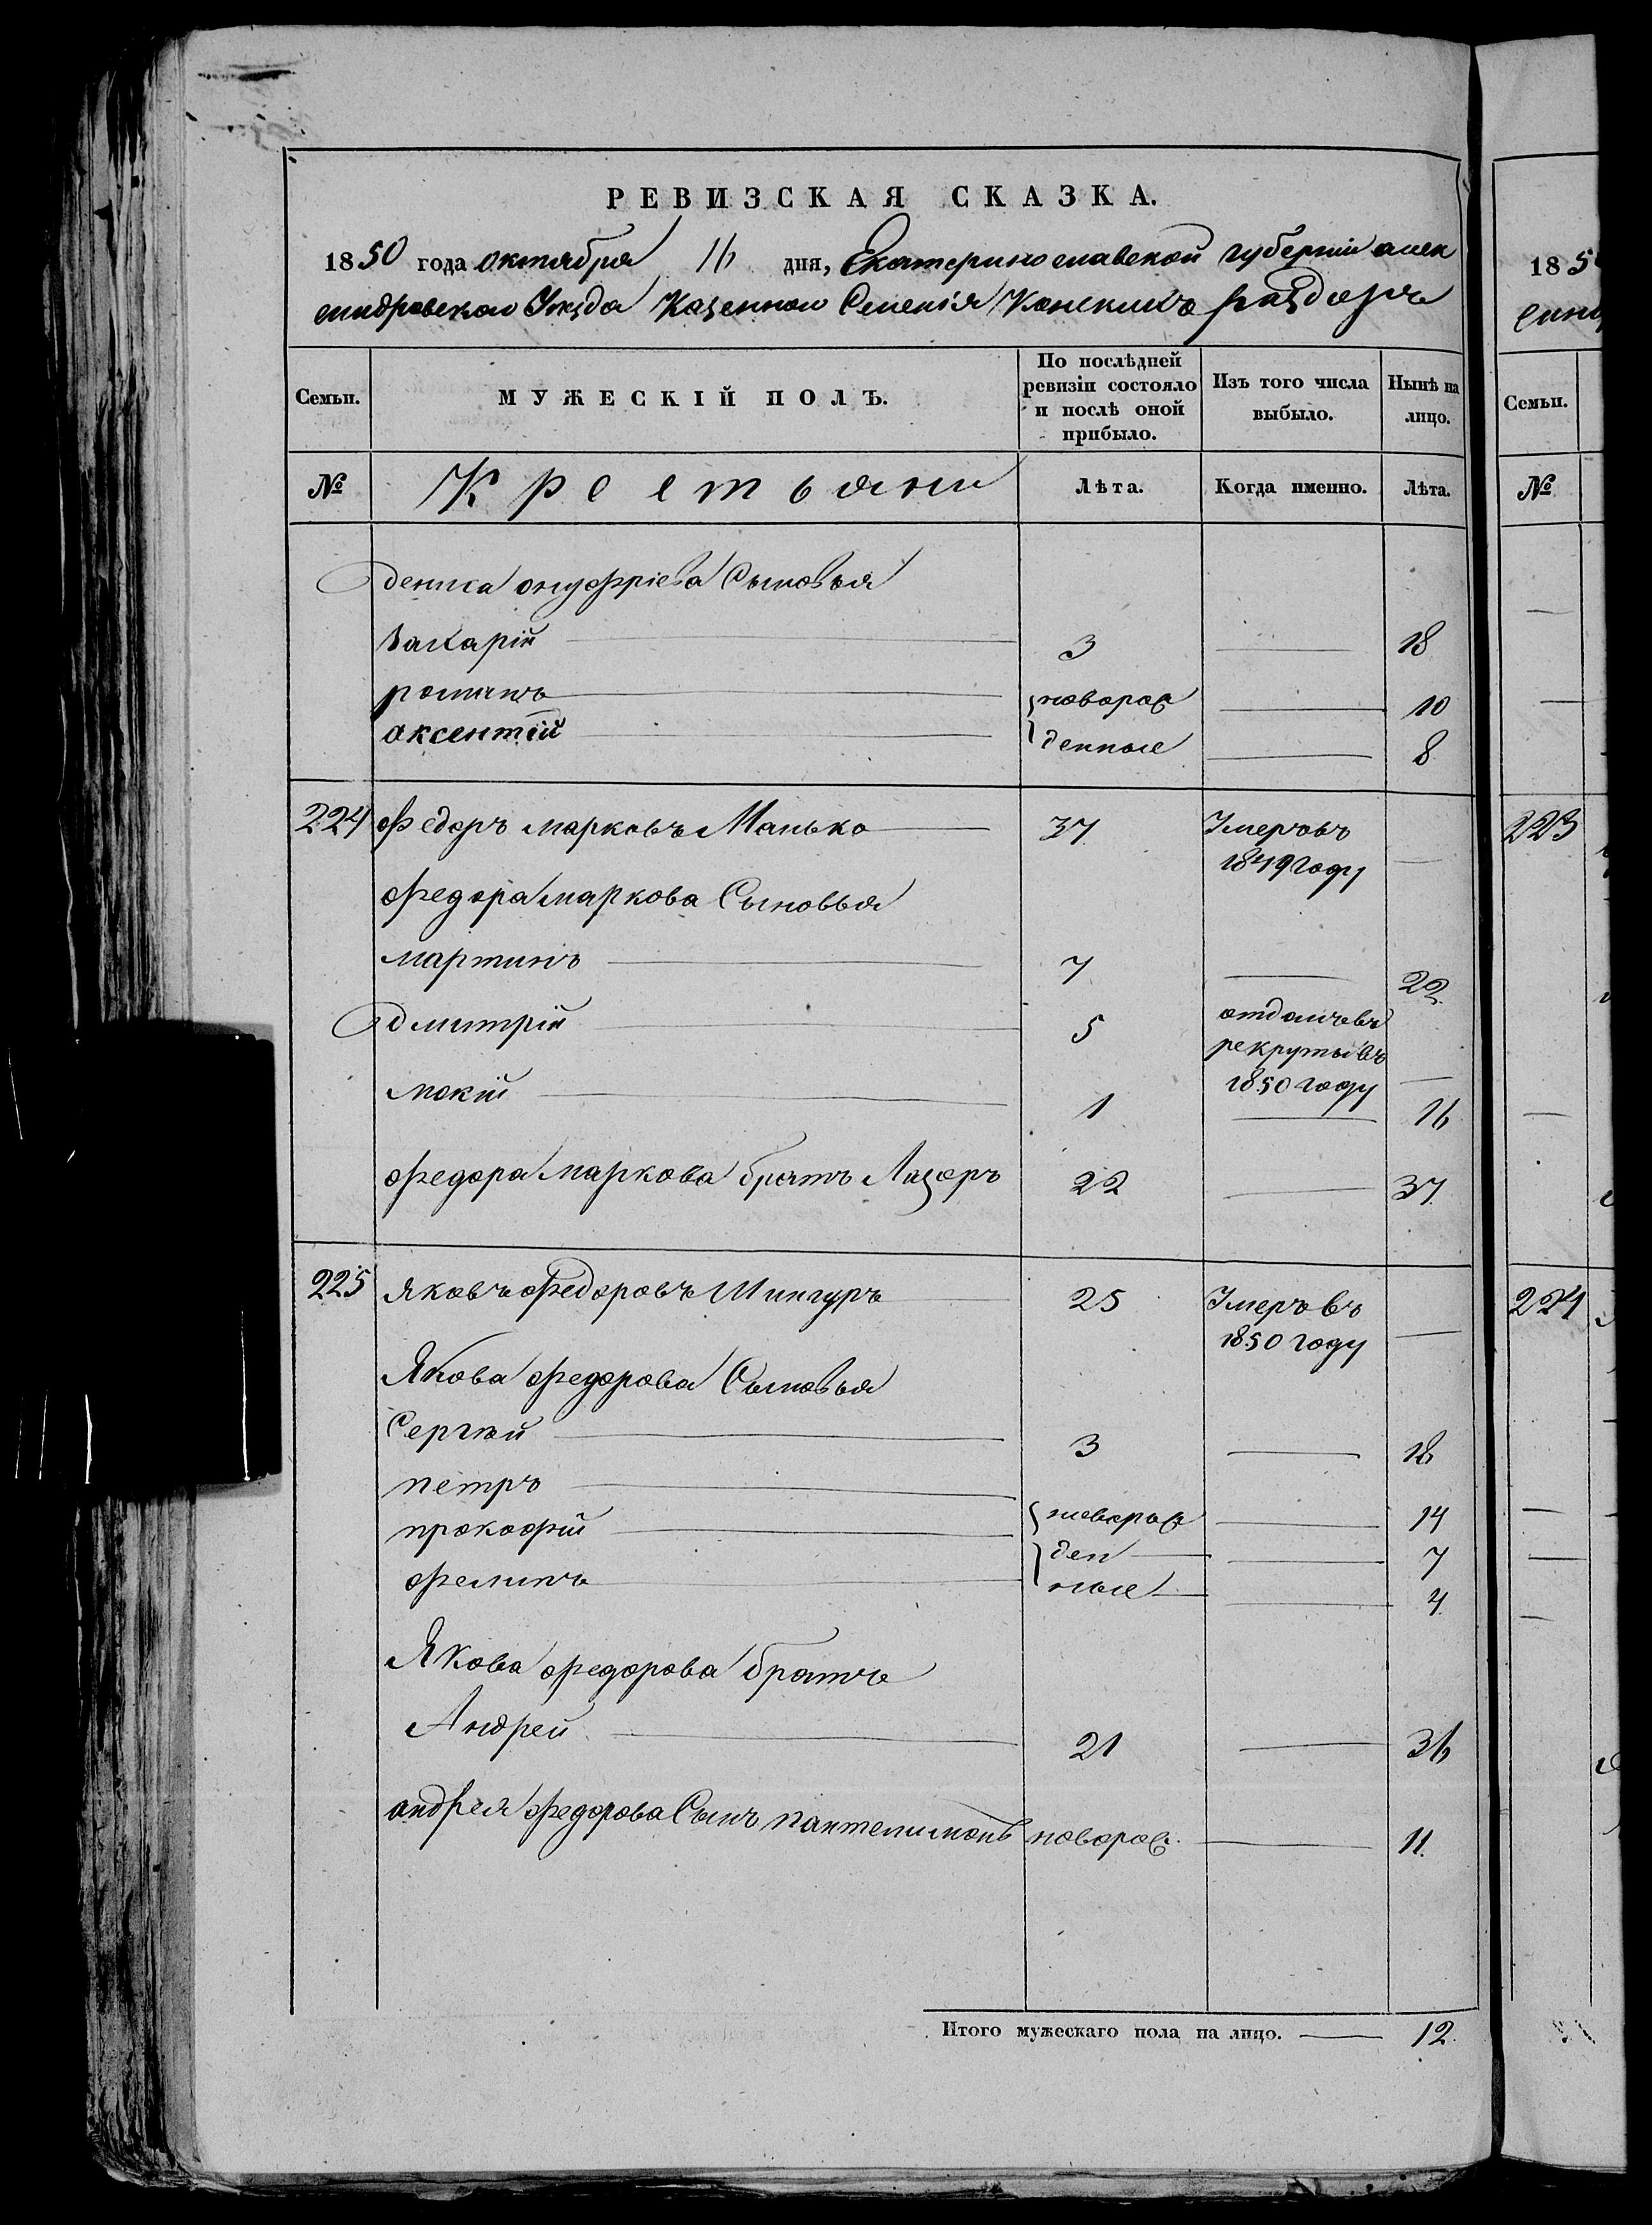 РЕВИЗСКАЯ СКАЗКА.
1850 года октября 16 дня, Екатеринославской губернiи алек
сандровскаго Уѣзда Казеннаго Селенiя Конскихъ раздоръ
Семьи. МУЖЕСКІЙ ПОЛЪ. По послѣдней ревизіи состояло и послѣ оной прибыло. Изъ того числа выбыло. Нынѣ на лицо.
№ Крестьяни Лѣта. Когда именно. Лѣта.
дениса онуфрiева Сыновья
Захарiй 3 18
романъ новорож 10
аксентiй денные 8
224 Федоръ марковъ Манько 37 Умеръ въ
1849 году
федора маркова Сыновья
мартинъ 7 22
дмитрiй 5 отданъ въ
рекруты въ
1850 году
мокiй 1 16
федора маркова братъ Лазоръ 22 37
225 яковъ федоровъ Шингуръ 25 Умеръ въ
1850 году
Якова федорова Сыновья
Сергѣй 3 18
петръ новорож 14
прокофiй ден 7
филипъ ные 4
Якова федорова братъ
Андрей 21 36
андрея федорова Сынъ пантелимонъ новорож. 11.
Итого мужескаго пола на лицо. 12
185
Семьи.
№
223
224